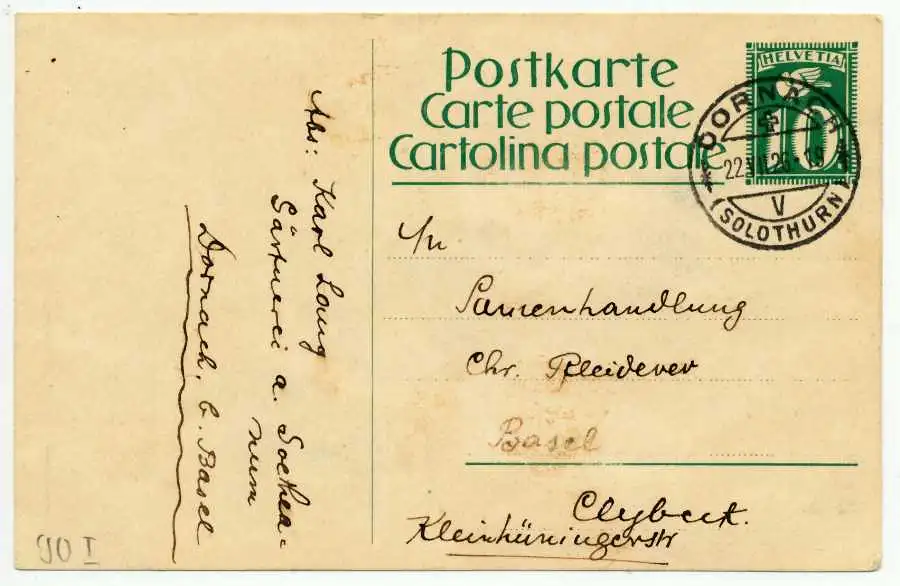 Postkarte
Carte postale
Cartolina postale
HELVETIA
10
DORNACH
22.VII.26-19
V
(SOLOTHURN)
Abs: Karl Lang
Gärtnerei a. Goethea-
num
Dornach. b. Basel
An
Samenhandlung
Chr. Pleiderer
Basel
Clybeck.
Kleinhüningerstr
90 I